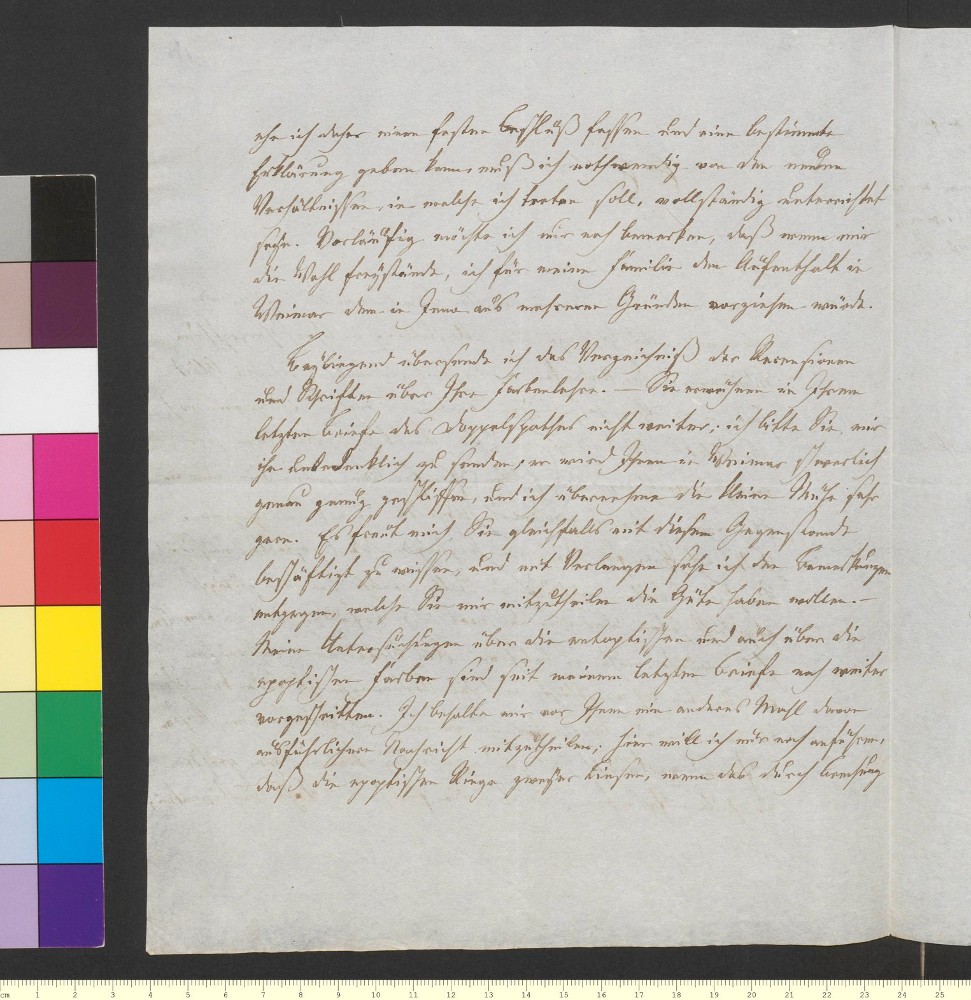 ehe ich daher einen festen Beschluß fassen und eine bestimmte
Erklärung geben kann, muß ich nothwendig von den neuen
Verhältnissen, in welche ich treten soll, vollständig unterrichtet
seyn. Vorläufig möchte ich nur noch bemerken, daß wenn mir
die Wahl freystände, ich für meine Familie den Aufenthalt in
Weimar dem in Jena aus mehreren Gründen vorziehen würde.
Beyliegend übersende ich das Verzeichniß der Recensionen
und Schriften über Ihre Farbenlehre. — Sie erwähnen in Ihrem
letzten Briefe des Doppelspathes nicht weiter; ich bitte Sie, mir
ihn unbedenklich zu senden, er wird Ihnen in Weimar schwerlich
genau genug geschliffen, und ich übernehme die kleine Mühe sehr
gern. Es freut mich, Sie gleichfalls mit diesem Gegenstande
beschäftigt zu wissen, und mit Verlangen sehe ich den Bemerkungen
entgegen, welche Sie mir mitzutheilen die Güte haben wollen. —
Meine Untersuchungen über die entoptischen und auch über die
epoptischen Farben sind seit meinem letzten Briefe noch weiter
vorgeschritten. Ich behalte mir vor Ihnen ein anderes Mahl davon
ausführlichere Nachricht mitzutheilen; hier will ich nur noch anführen,
daß die epoptischen Ringe zweyer Linsen, wenn das durch Brechung